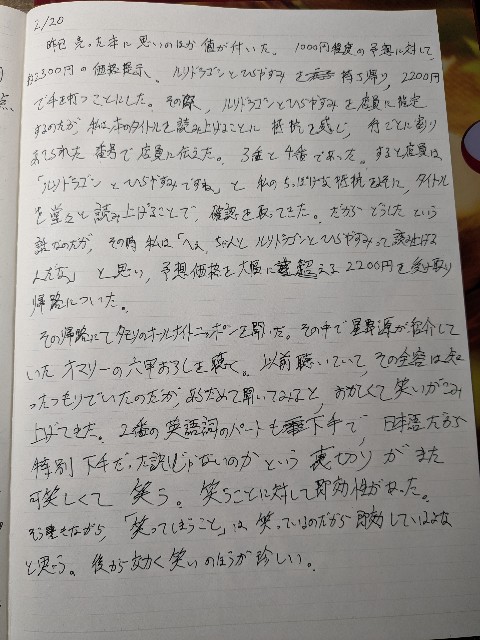 2/20
昨日売った本に思いのほか値が付いた。1000円程度の予想に対して、
2300円の価格提示、ルリドラゴンとひらやすみを持ち帰り、2200円
で手を打つことにした。その際、ルリドラゴンとひらやすみを店員に指定
するのだが、私は本のタイトルを読み上げることに抵抗を感じ、行ごとに割り
あてられた番号で店員に伝えた。3番と4番であった。すると店員は、
「ルリドラゴンとひらやすみですね」と私のちっぽけな抵抗をよそに、タイトル
を堂々と読み上げることで、確認を取ってきた。だからどうしたという
話なのだが、その時私は「へぇ、ちゃんとルリドラゴンとひらやすみって読み上げる
んだな」と思い、予想価格を大幅に超える2200円を受け取り
帰路についた。
その帰路にてタモリのオールナイトニッポンを聞いた。その中で星野源が紹介して
いたオマリーの六甲おろしを聴く。以前聴いていて、その全容は知
ったつもりでいたのだが、あらためて聞いてみると、おかしくて笑いがこみ
上げてきた。2番の英語詞のパートも下手で、日本語だから
特別下手だった訳じゃないのかという裏切りがまた
可笑しくて笑う。笑うことに対して即効性があった。
そう書きながら、「笑ってしまうこと」は笑っているのだから即効しているよな
と思う。後から効く笑いのほうが珍しい。